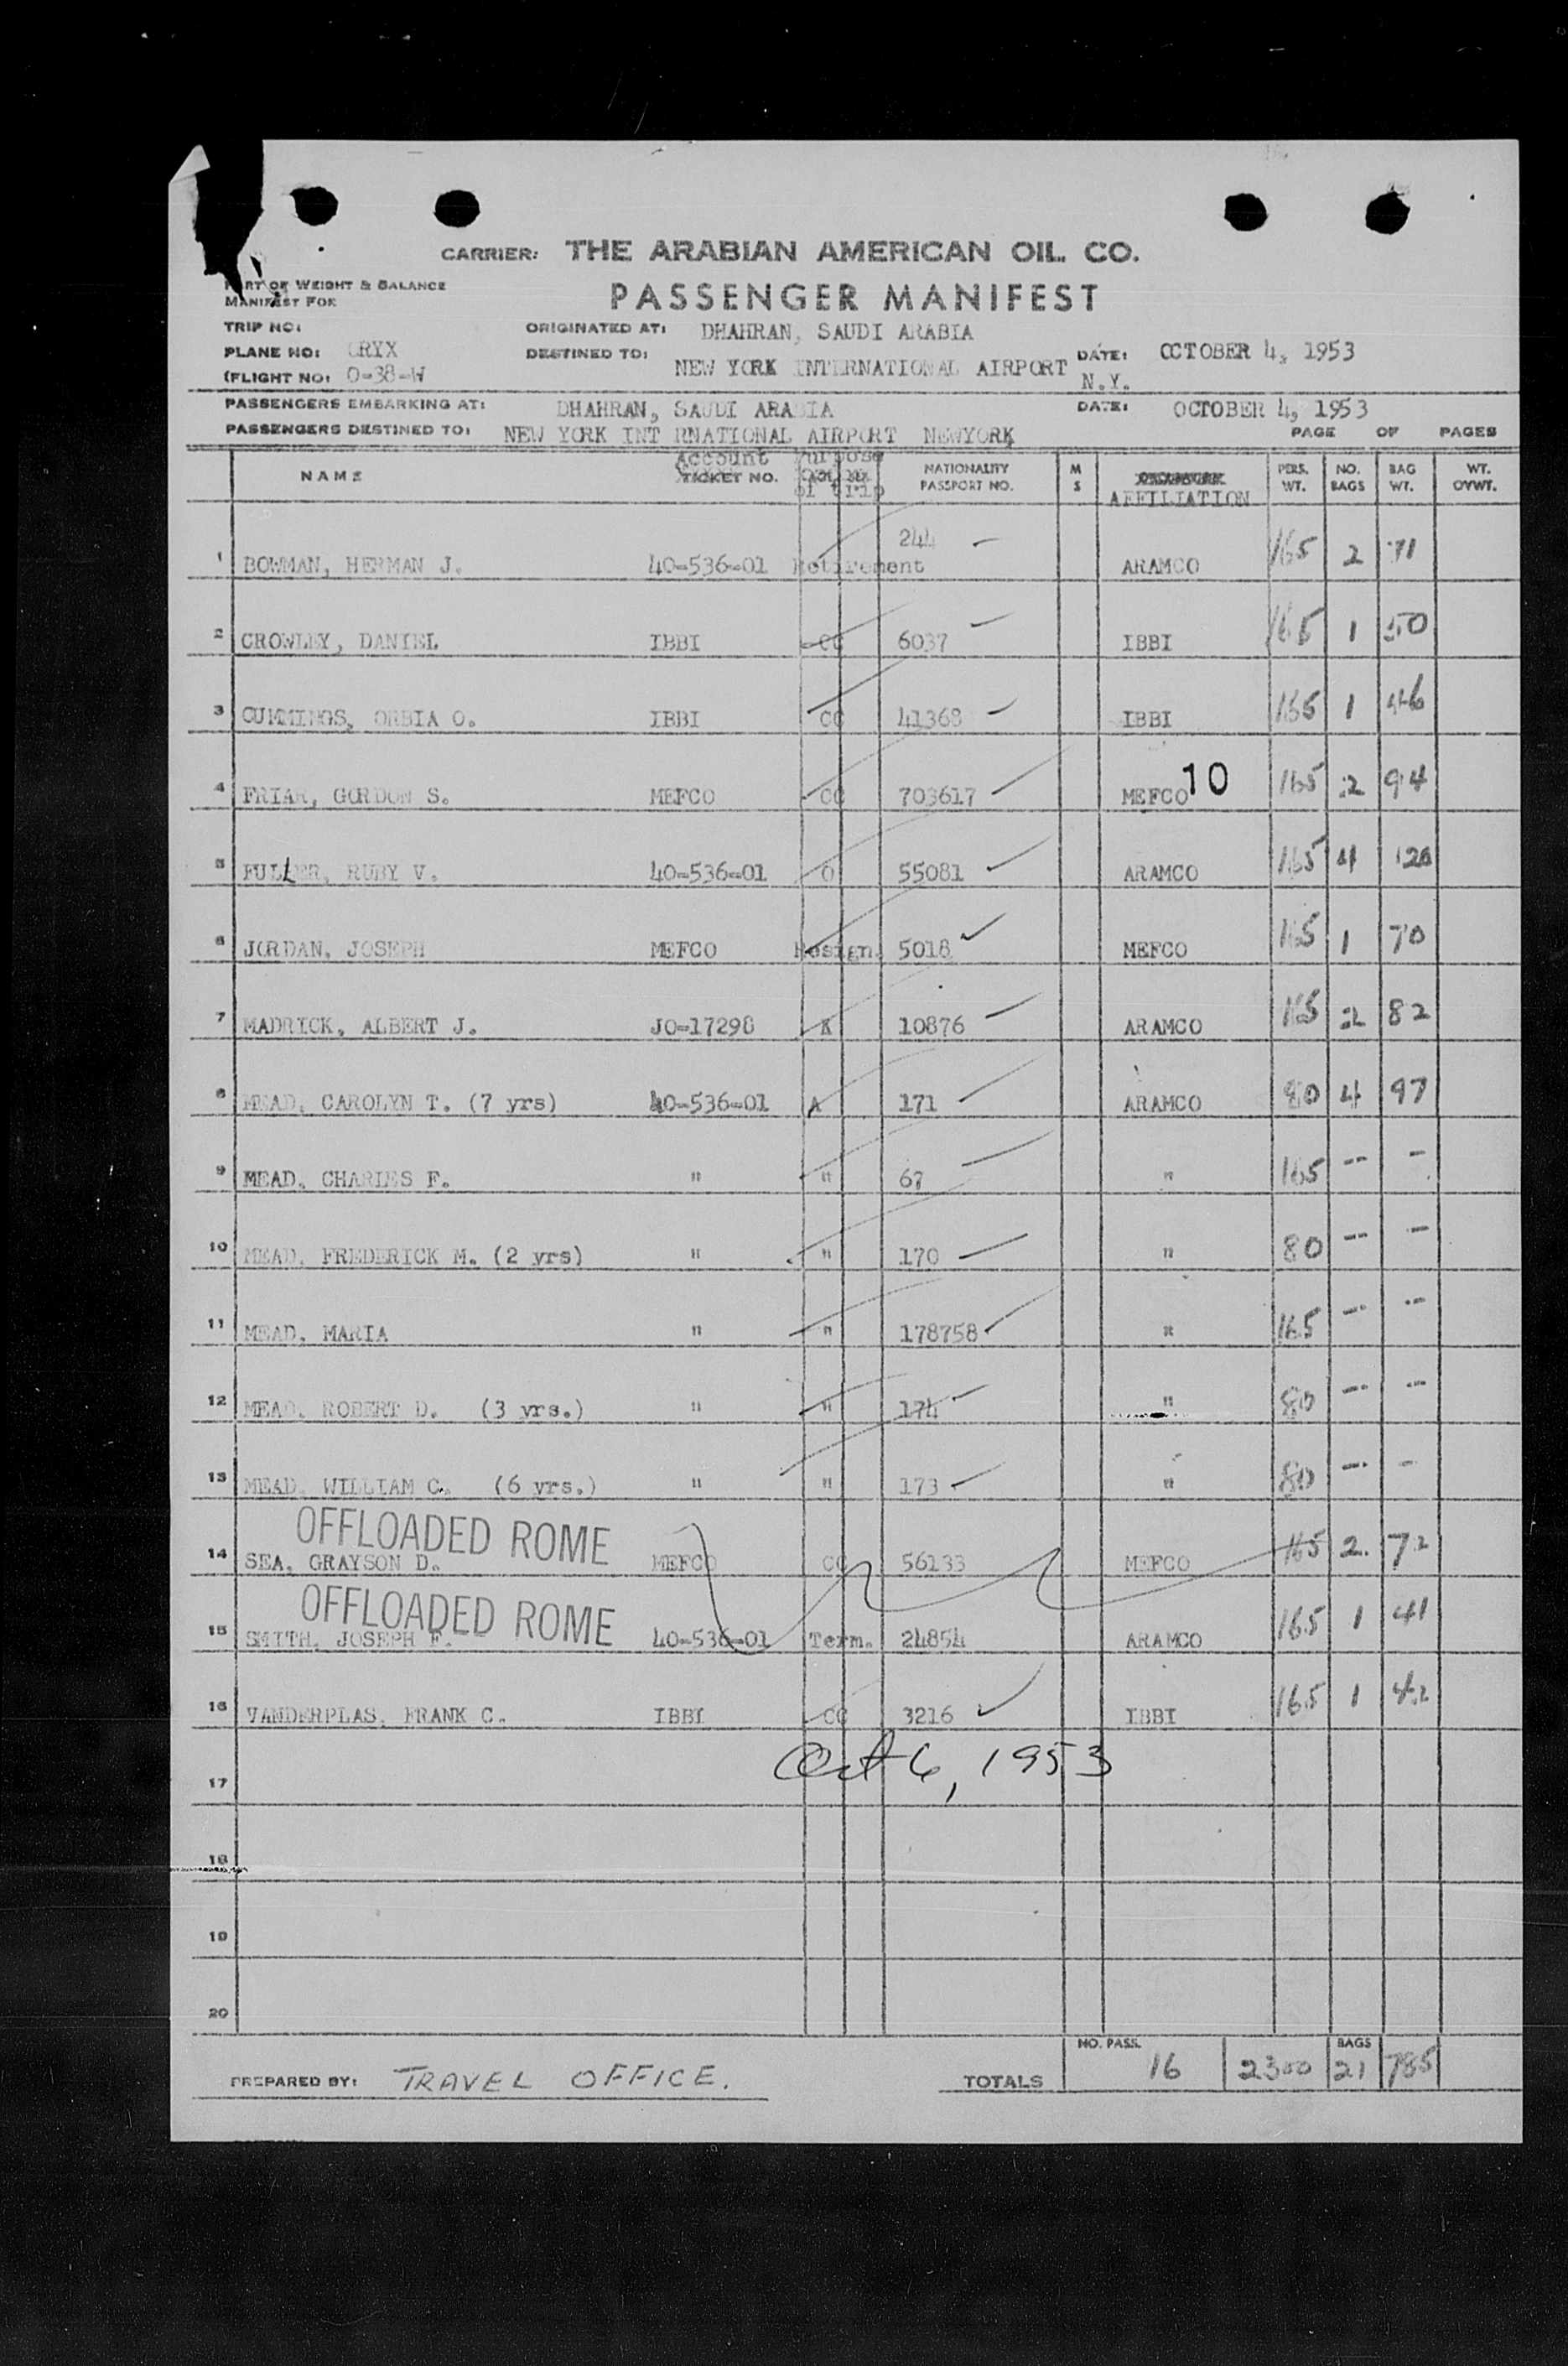 CARRIER: THE ARABIAN AMERICAN OIL CO.
PART OF WEIGHT & BALANCE
MANIFEST FOR
PASSENGER MANIFEST
TRIP NO: ORIGINATED AT: DHAHRAN, SAUDI ARABIA
PLANE NO: ORYX DESTINED TO: NEW YORK INTERNATIONAL AIRPORT N.Y. DATE: OCTOBER 4, 1953
(FLIGHT NO: O-38-W
PASSENGERS EMBARKING AT: DHAHRAN, SAUDI ARABIA DATE: OCTOBER 4, 1953
PASSENGERS DESTINED TO: NEW YORK INT RNATIONAL AIRPORT NEWYORK PAGE OF PAGES
NAME Account TICKET NO. Purpose of trip NATIONALITY PASSPORT NO. M S AFFILIATION PERS. WT. NO. BAGS BAG WT. WT. OVWT.
1 BOWMAN, HERMAN J. 40-536-01 Retirement 244 ARAMCO 165 2 71
2 CROWLEY, DANIEL IBBI CC 6037 IBBI 165 1 50
3 CUMMINGS, ORBIA O. IBBI CC 41368 IBBI 165 1 46
4 FRIAR, GORDON S. MEFCO CC 703617 MEFCO 10 165 2 94
5 FULLER, RUBY V. 40-536-01 O 55081 ARAMCO 165 4 120
6 JORDAN, JOSEPH MEFCO Resign. 5018 MEFCO 165 1 70
7 MADRICK, ALBERT J. JO-17298 K 10876 ARAMCO 165 2 82
8 MEAD, CAROLYN T. (7 yrs) 40-536-01 A 171 ARAMCO 80 4 97
9 MEAD, CHARLES F. " " 67 " 165 -- -
10 MEAD, FREDERICK M. (2 yrs) " " 170 " 80 -- -
11 MEAD, MARIA " " 178758 " 165 -- --
12 MEAD, ROBERT D. (3 yrs.) " " 174 " 80 -- --
13 MEAD, WILLIAM C. (6 yrs.) " " 173 " 80 -- -
OFFLOADED ROME
14 SEA, GRAYSON D. MEFCO CC 56133 MEFCO 165 2 72
OFFLOADED ROME
15 SMITH, JOSEPH F. 40-536-01 Term. 24854 ARAMCO 165 1 41
16 VANDERPLAS, FRANK C. IBBI CC 3216 IBBI 165 1 42
Oct 6, 1953
17
18
19
20
NO. PASS. BAGS
PREPARED BY: TRAVEL OFFICE. TOTALS 16 2300 21 785